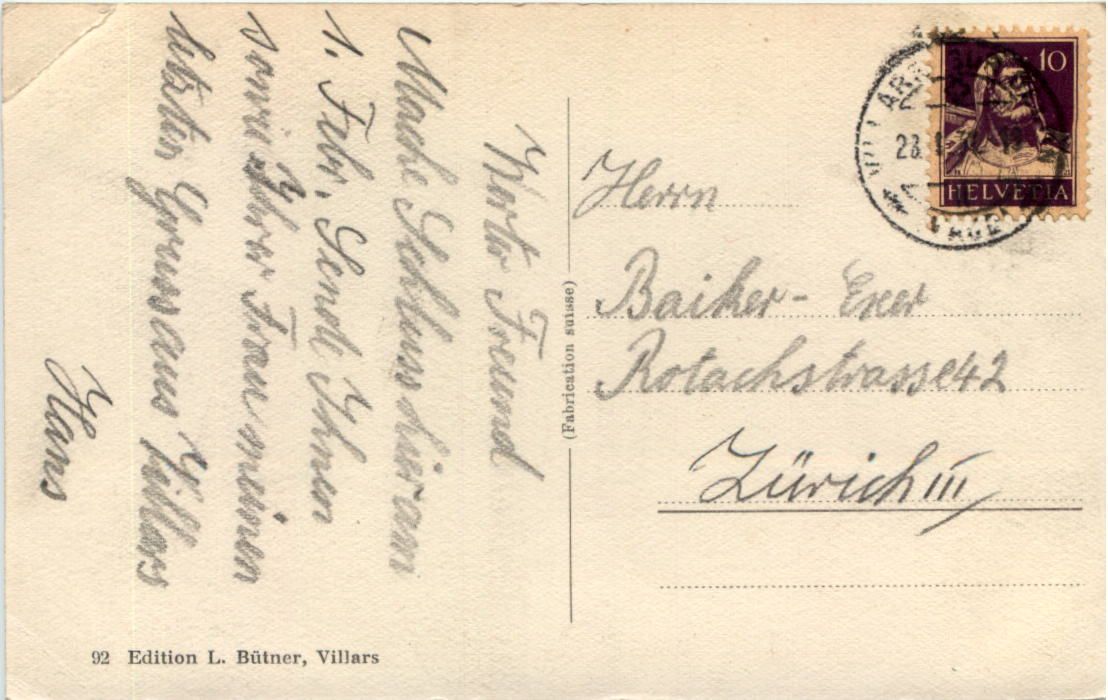 Werter Freund
Mache Schluss hier am
1. Febr. Sende Ihnen
sowie Ihrer Frau meinen
letzten Gruss aus Villars
Hans
(Fabrication suisse)
10
HELVETIA
23.
Herrn
Baiker-
Rotachstrasse 42
Zürich III
92 Edition L. Bütner, Villars